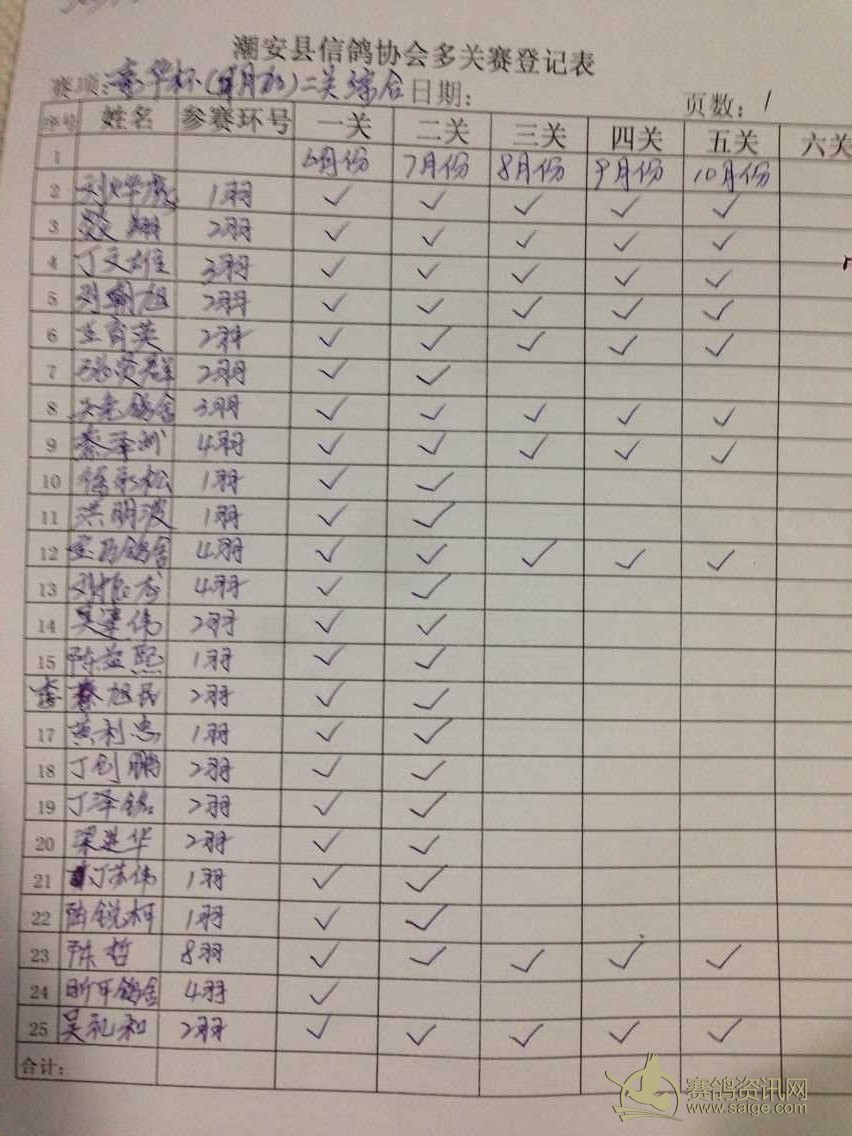 潮安县信鸽协会多关赛登记表
赛项: 华杯( 月 ) 二关综合 日期: 页数: 1
序号 姓名 参赛环号 一关 二关 三关 四关 五关 六关
1 6月份 7月份 8月份 9月份 10月份
2 1羽 ✓ ✓ ✓ ✓ ✓
3 翔 2羽 ✓ ✓ ✓ ✓ ✓
4 丁文雄 3羽 ✓ ✓ ✓ ✓ ✓
5 刘 旭 2羽 ✓ ✓ ✓ ✓ ✓
6 育英 2羽 ✓ ✓ ✓ ✓ ✓
7 群 2羽 ✓ ✓
8 鸽舍 3羽 ✓ ✓ ✓ ✓ ✓
9 蔡泽 4羽 ✓ ✓ ✓ ✓ ✓
10 徐 松 1羽 ✓ ✓
11 洪明波 1羽 ✓ ✓
12 鸽舍 4羽 ✓ ✓ ✓ ✓ ✓
13 刘 4羽 ✓ ✓
14 吴 伟 2羽 ✓ ✓
15 陈益熙 1羽 ✓ ✓
旭民 2羽 ✓ ✓
17 黄利忠 1羽 ✓ ✓
18 丁创鹏 2羽 ✓ ✓
19 丁泽铭 2羽 ✓ ✓
20 梁进华 2羽 ✓ ✓
21 丁 伟 1羽 ✓ ✓
22 陆锐柯 1羽 ✓ ✓
23 陈哲 8羽 ✓ ✓ ✓ ✓ ✓
24 鸽舍 4羽 ✓
25 吴礼和 2羽 ✓ ✓ ✓ ✓ ✓
合计:
赛鸽资讯网
www.saige.com